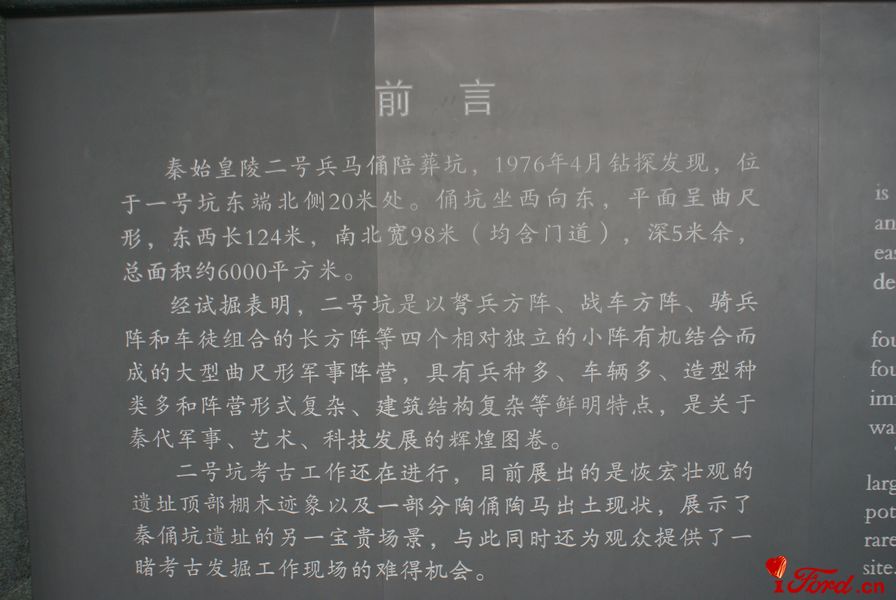 前 言
秦始皇陵二号兵马俑陪葬坑，1976年4月钻探发现，位
于一号坑东端北侧20米处。俑坑坐西向东，平面呈曲尺
形，东西长124米，南北宽98米（均含门道），深5米余，
总面积约6000平方米。
经试掘表明，二号坑是以弩兵方阵、战车方阵、骑兵
阵和车徒组合的长方阵等四个相对独立的小阵有机结合而
成的大型曲尺形军事阵营，具有兵种多、车辆多、造型种
类多和阵营形式复杂、建筑结构复杂等鲜明特点，是关于
秦代军事、艺术、科技发展的辉煌图卷。
二号坑考古工作还在进行，目前展出的是恢宏壮观的
遗址顶部棚木迹象以及一部分陶俑陶马出土现状，展示了
秦俑坑遗址的另一宝贵场景，与此同时还为观众提供了一
睹考古发掘工作现场的难得机会。
is
an
eas
de
fou
fou
im
wa
larg
pot
rare
site.
iFord.cn